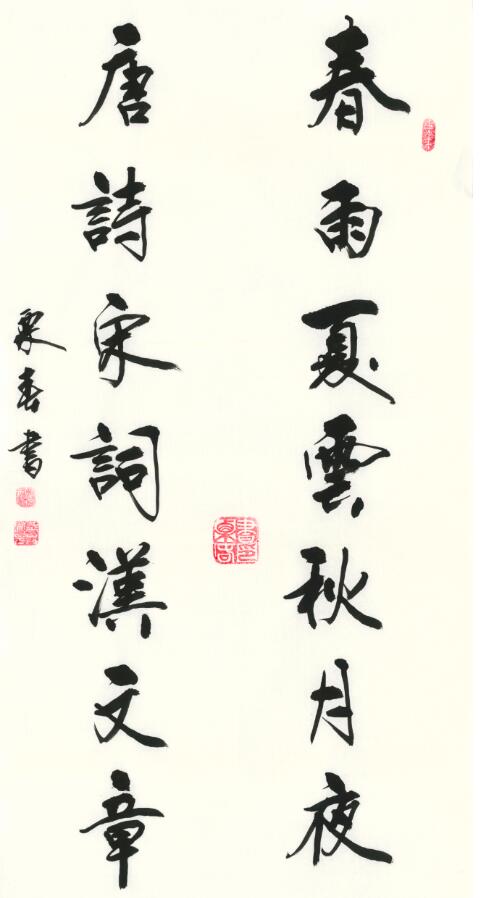 春雨夏雲秋月夜
唐詩宋詞漢文章
春書